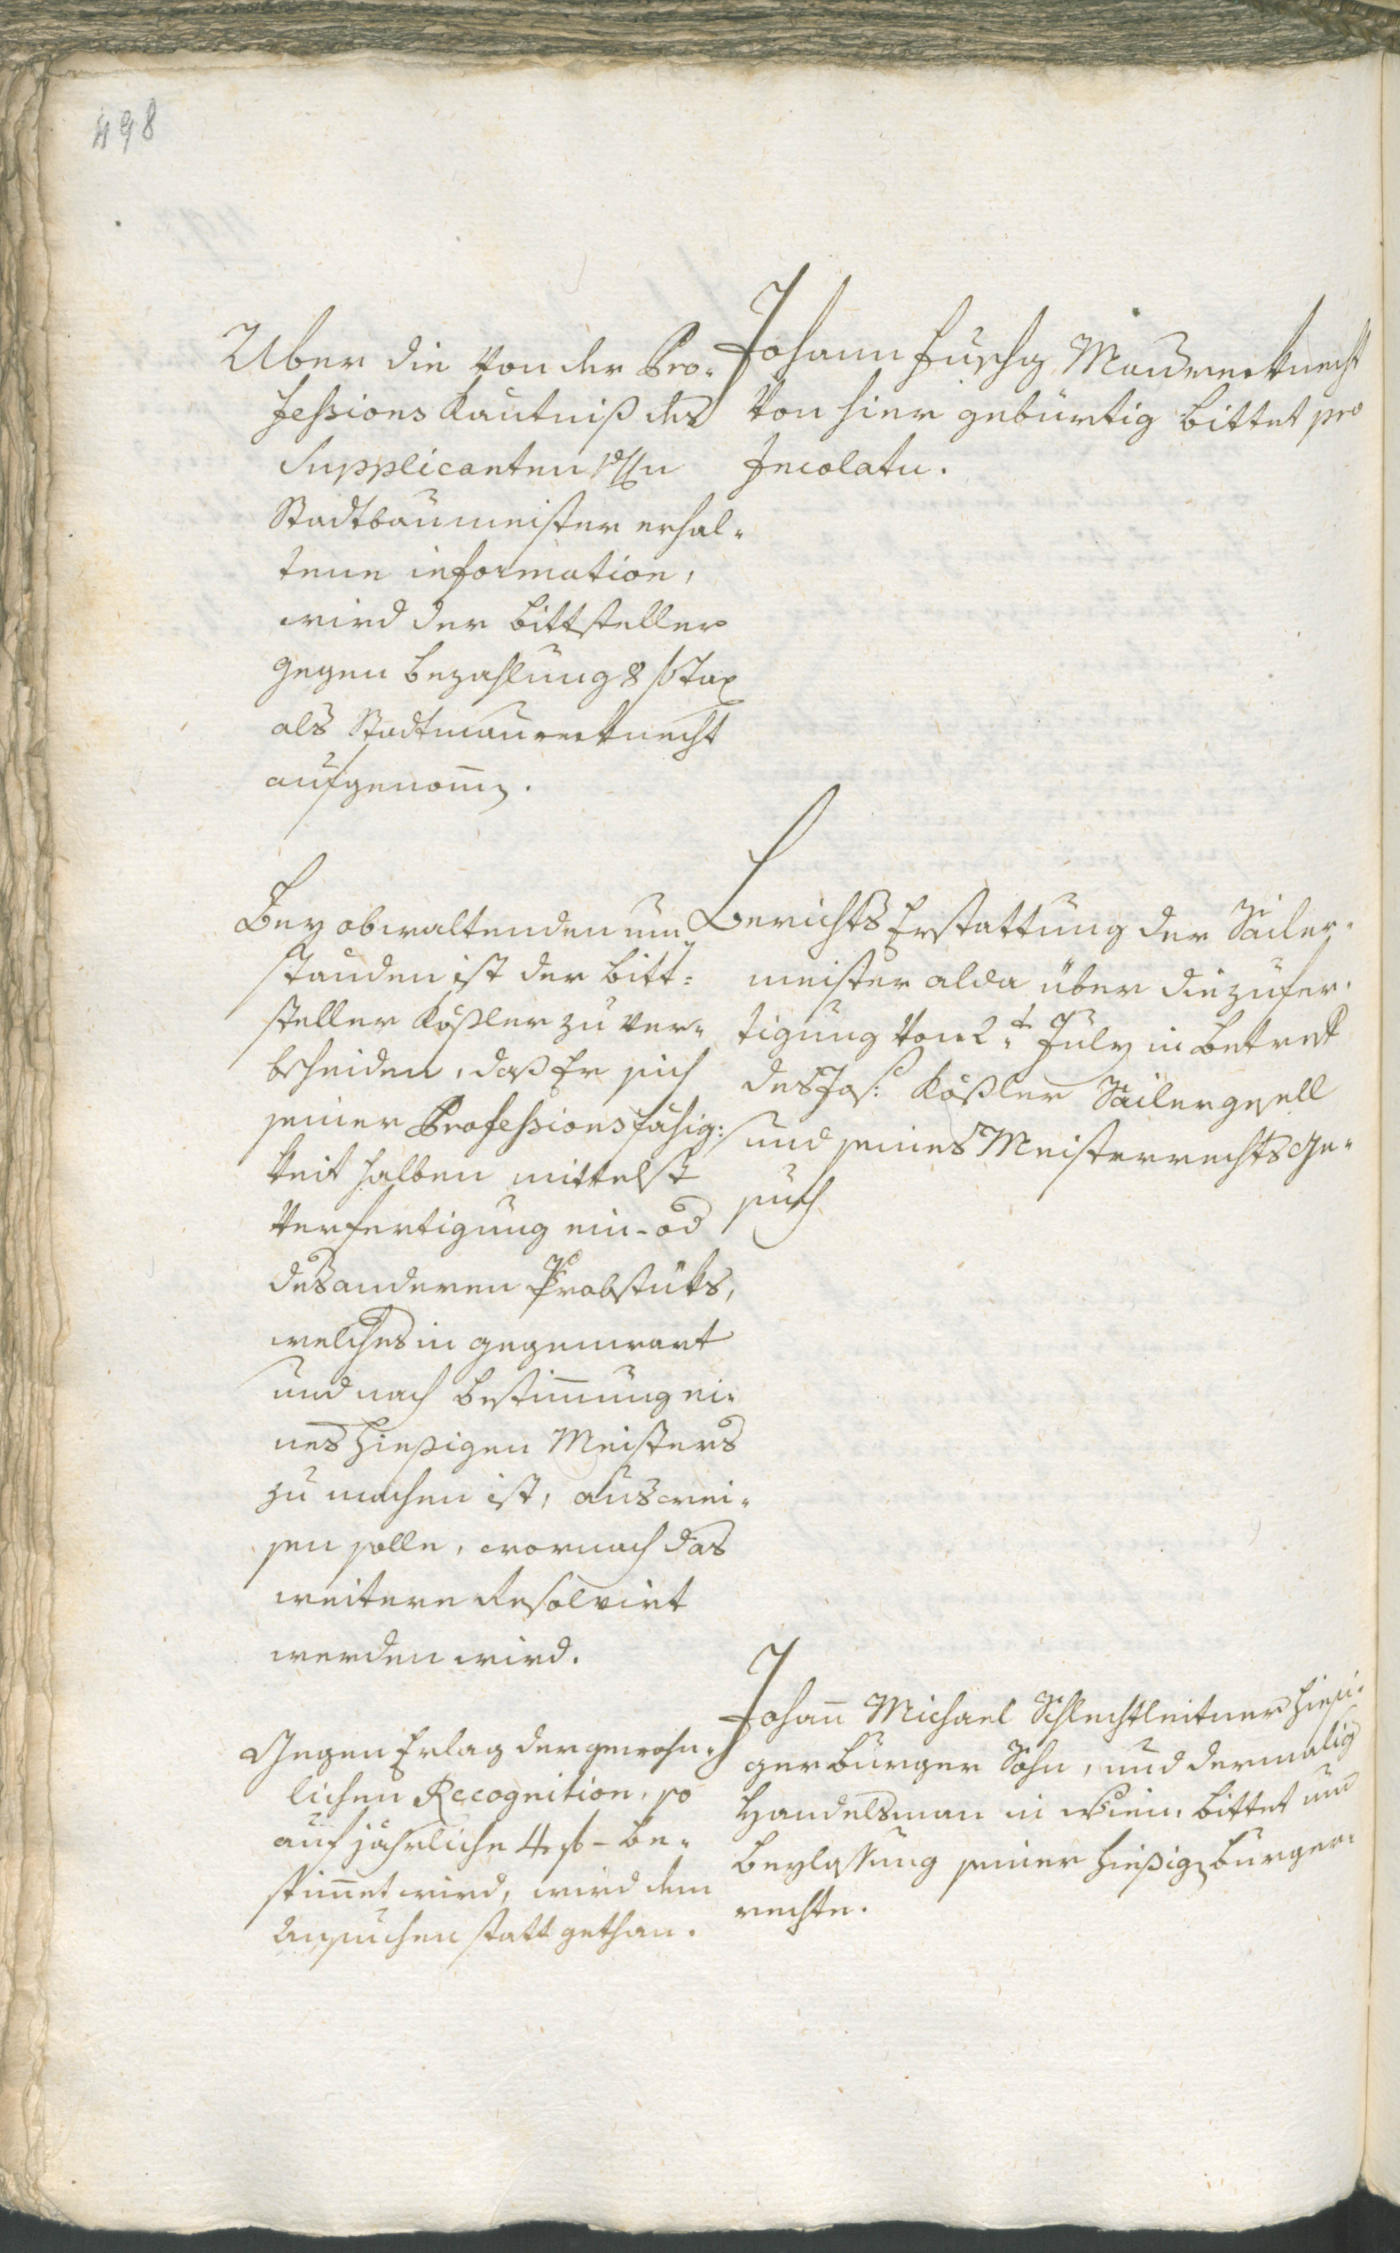 498
Uber die von der Pro-
fessions Kantniß des
Supplicanten
Stadtbaumeister erhal-
tene information,
wird der Bittsteller
gegen bezahlung 8 f Tax
als Stadtmaurerknecht
aufgenom̄.
Johann Maurerknecht
von hier gebürtig bittet pro
Incolatu.
Bey obwaltenden um-
standen ist der Bitt-
steller Kößler zu ver-
bscheiden, daß Er sich
seiner Professions fähig-
keit halben mittelst
Verfertigung ein- od
des anderen Probstüks,
welches in gegenwart
und nach bestim̄ung ei-
nes hießigen Meisters
zu machen ist, auswei-
sen solle, wornach das
weitere Resolvirt
werden wird.
Berichts Erstattung der Sailer-
meister alda über die zufer-
tigung von 2.t July in betref
des Jos: Kößler Sailergesell
und seines Meisterrechts ge-
such
Gegen Erlag der gewohn-
lichen Recognition, so
auf jährliche 4 f - be-
stim̄et wird, wird dem
Ansuchen statt gethan.
Johan̄ Michael Schlechtleitner hiesi-
ger burger Sohn, und dermalig
Handelsman in Wien, bittet um
beylassung seiner hießig burger-
rechte.